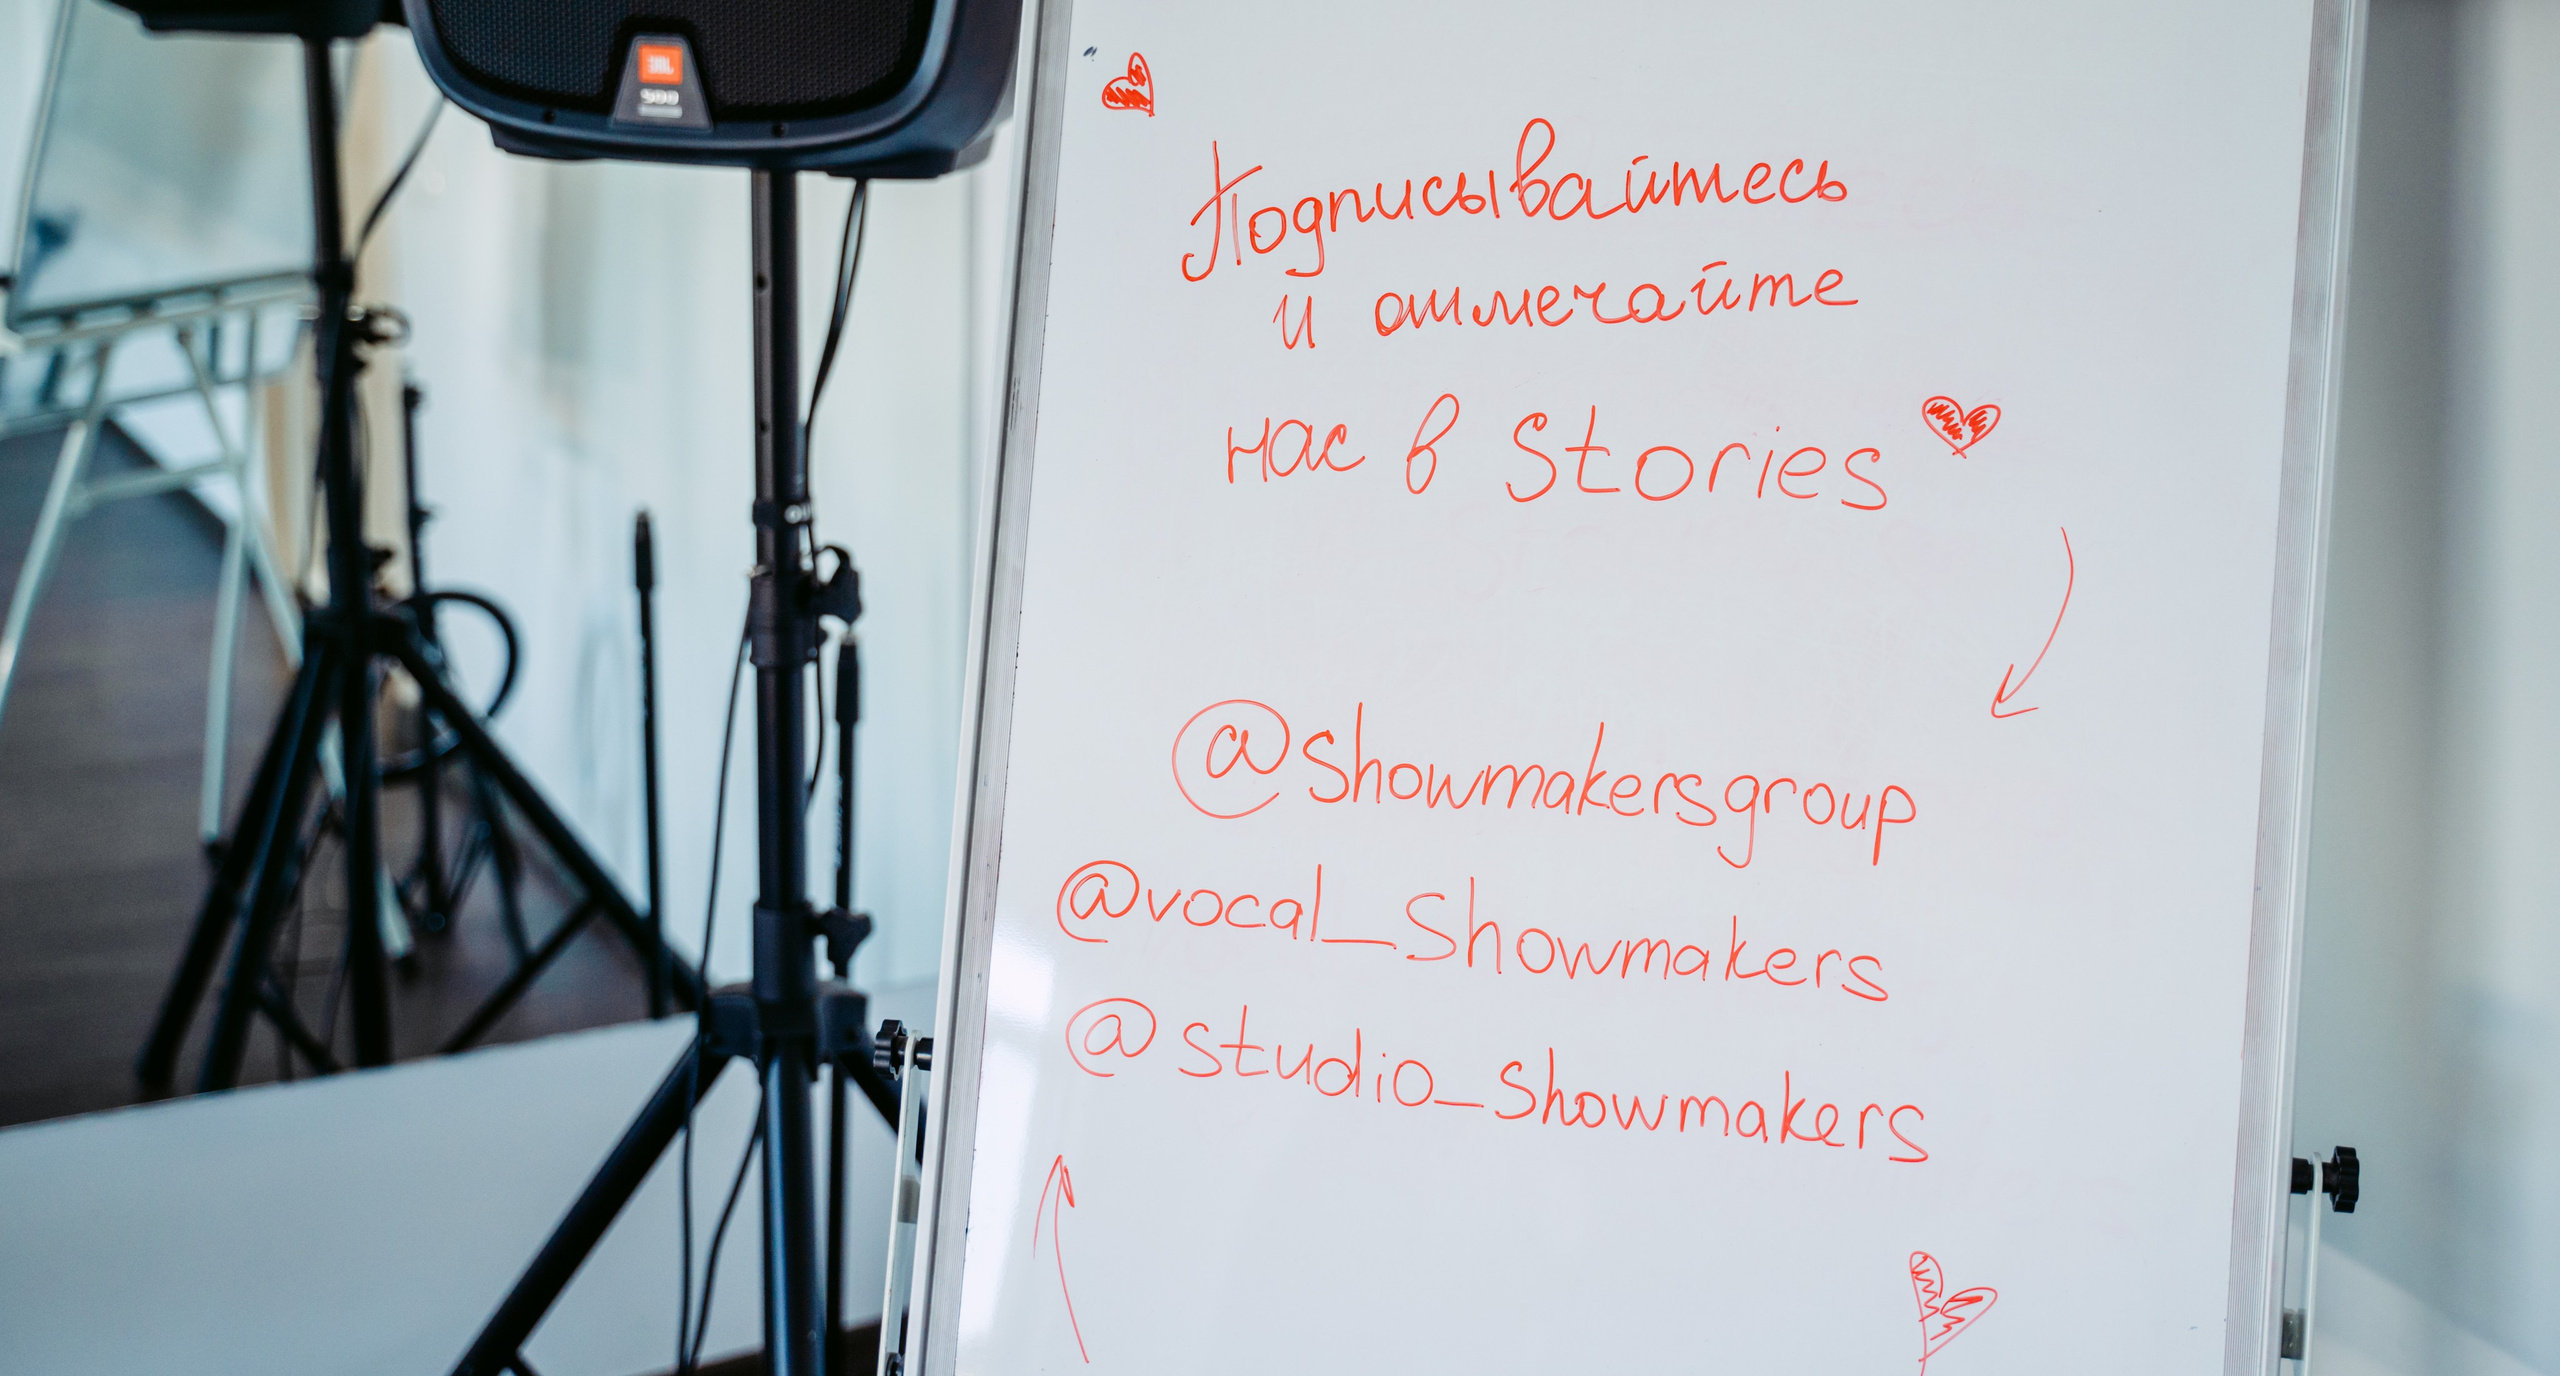 JBL
500
Подписывайтесь
и отмечайте
нас в Stories
@showmakersgroup
@vocal_showmakers
@studio_showmakers